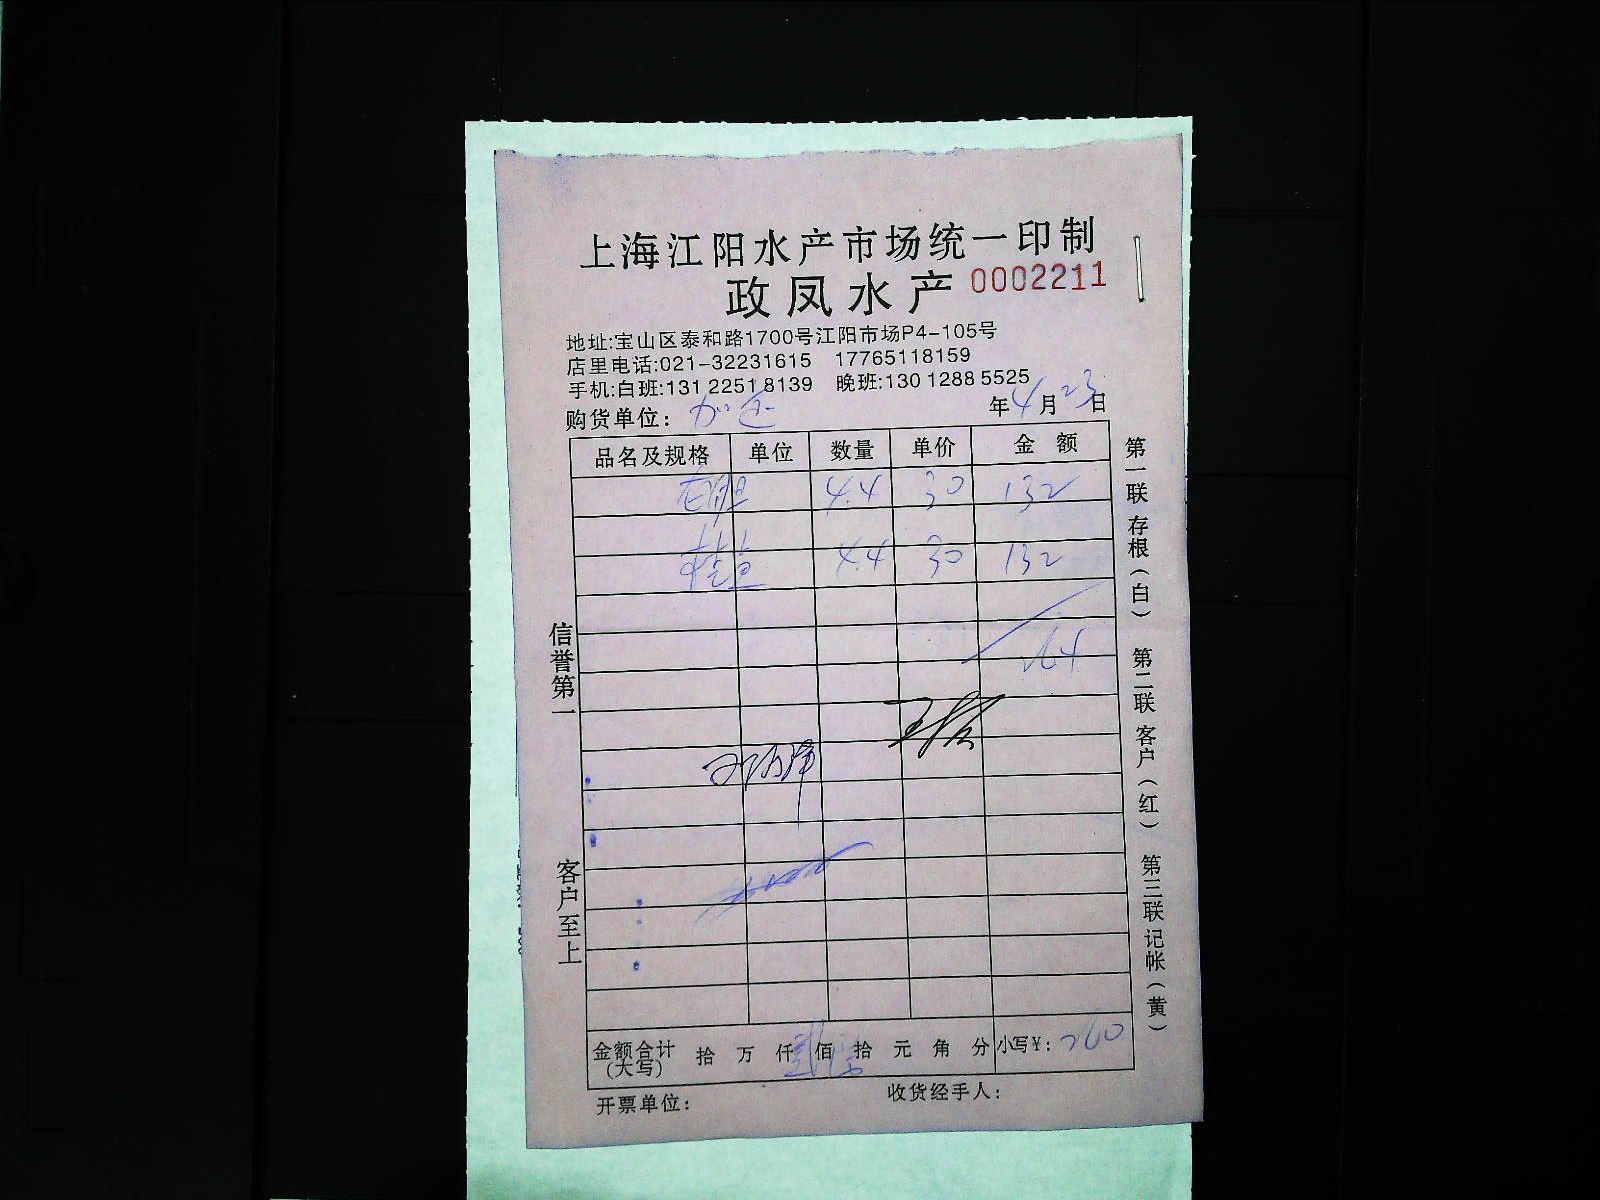 上海江阳水产市场统一印制
政凤水产 0002211
地址:宝山区泰和路1700号江阳市场P4-105号
店里电话:021-32231615 17765118159
手机:白班:131 2251 8139 晚班:130 1288 5525
购货单位: 年4月23日
品名及规格 单位 数量 单价 金额
4.4 30 132
4.4 30 132
264
金额合计(大写) 拾 万 仟 佰 拾 元 角 分 小写¥: 260
开票单位: 收货经手人:
信誉第一
客户至上
第一联存根(白) 第二联客户(红) 第三联记帐(黄)